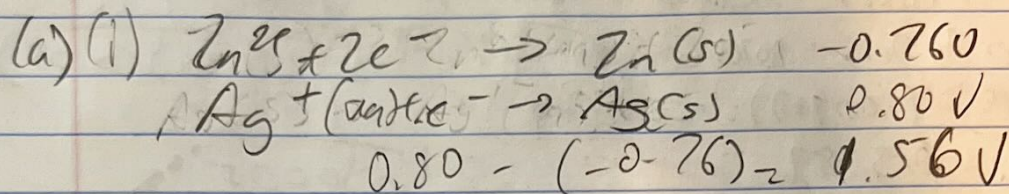 (a) (1) Zn²⁺ + 2e⁻ → Zn (s) -0.760
Ag⁺ (aq) + e⁻ → Ag(s) 0.80 V
0.80 - (-0.76) = 1.56 V